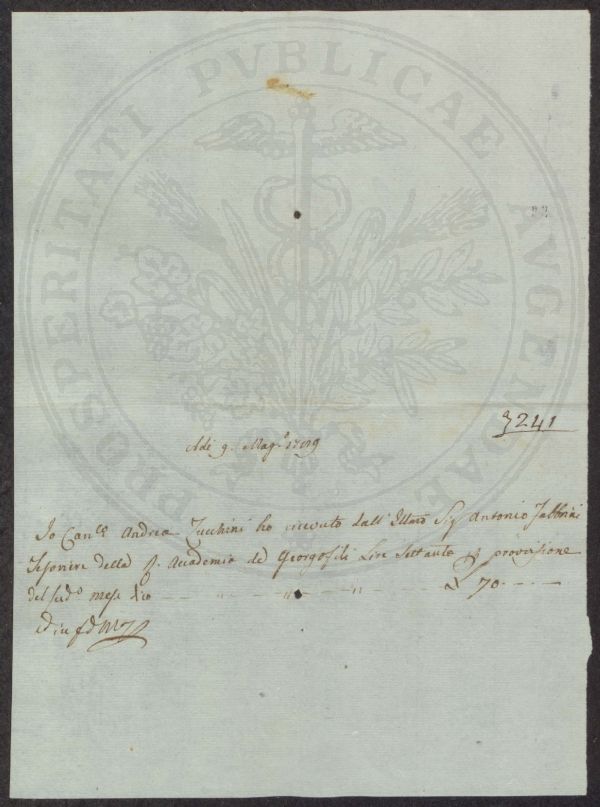 PROSPERITATI PVBLICAE AVGENDAE
22
3241
Adi 9. Magº 1799
Io Canco Andrea Zucchini ho ricevuto dall' Illmo Sigr Antonio Fabbrini
Tesoriere della R. Accademia de Georgofili Lire Settanta p provisione
del sudº mese dico £ 70